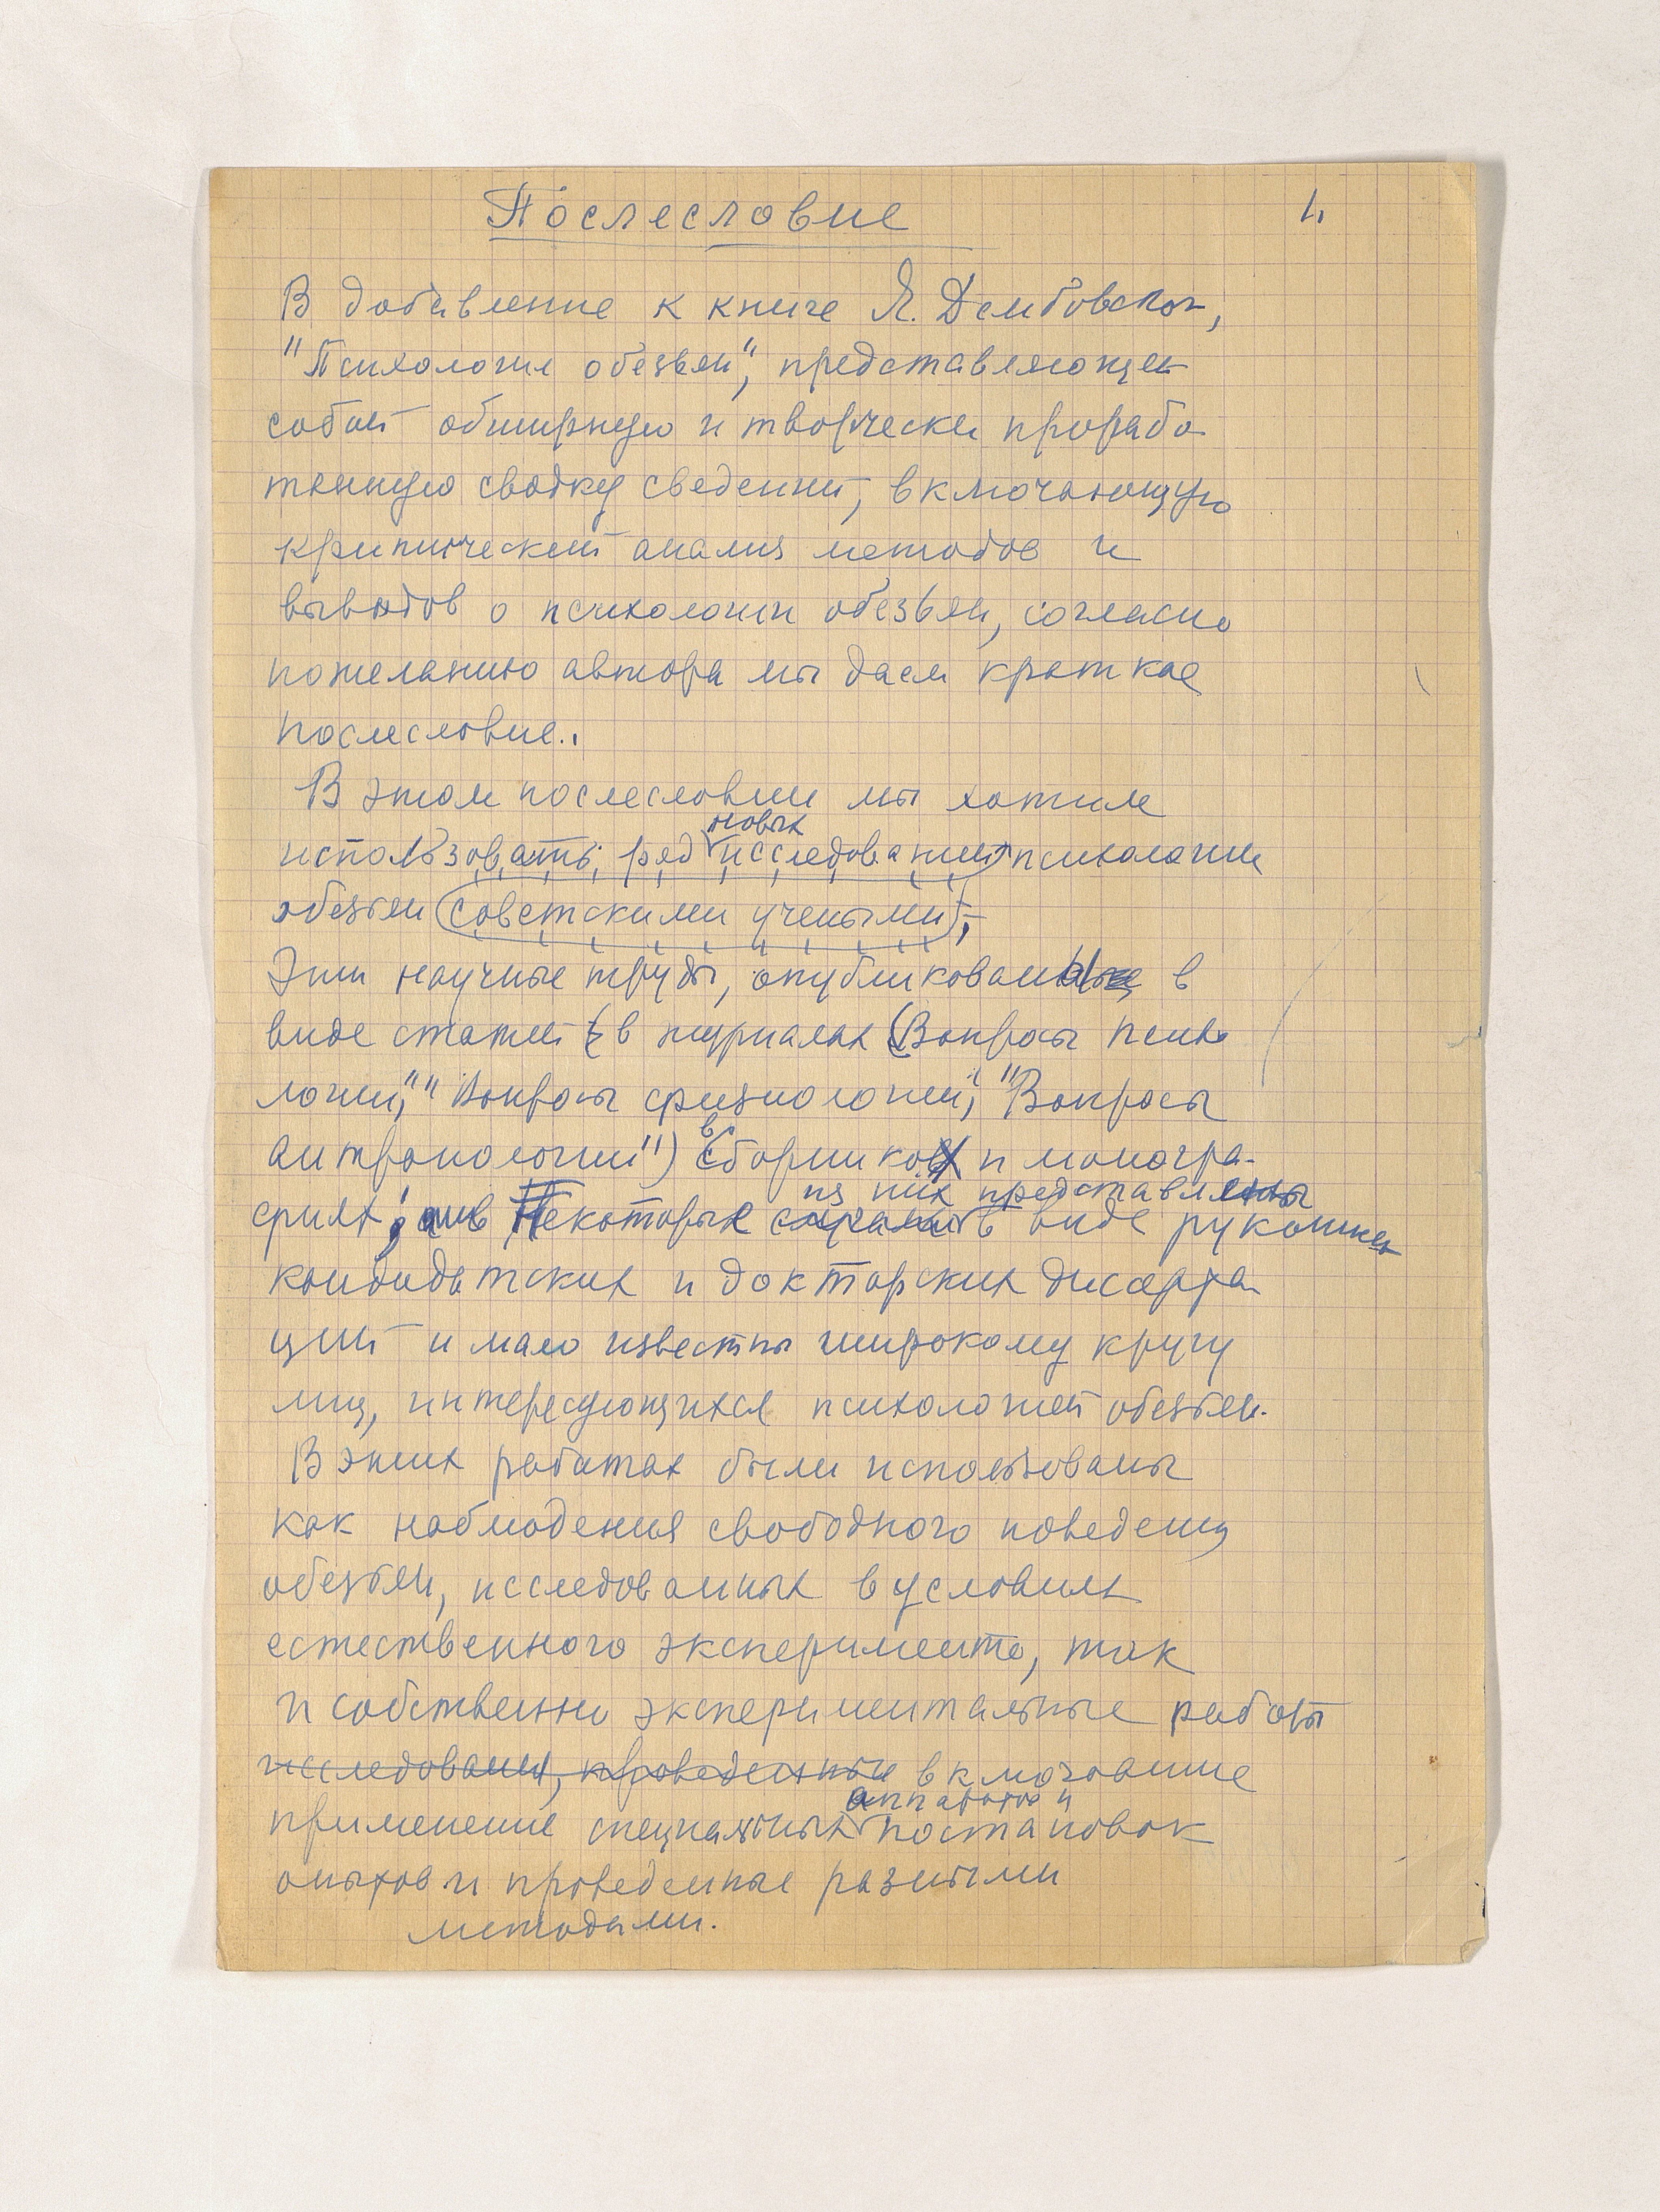 Послесловие
1.
В добавление к книге Я. Дембовского,
"Психология обезьян", представляющей
собой обширную и творчески прорабо
танную сводку сведений, включающую
критический анализ методов и
выводов о психологии обезьян, согласно
пожеланию автора мы даем краткое
послесловие.
В этом послесловии мы хотим
новых
использовать ряд исследований психологии
обезьян (советскими учеными);
Эти научные труды, опубликованы в
виде статей (в журналах (Вопросы психо
логии", "Вопросы физиологии", "Вопросы
антропологии") в
Сборниках и моногра-
из них представлены
фиях; Некоторые в виде рукописей
кандидатских и докторских диссерта
ций и мало известны широкому кругу
лиц, интересующихся психологией обезьян.
В этих работах были использованы
как наблюдения свободного поведения
обезьян, исследованных в условиях
естественного эксперимента, так
и собственно экспериментальные работы
исследования, проведенные включавшие
аппаратов и
применение специальных постановок
опытов и проведенные разными
методами.